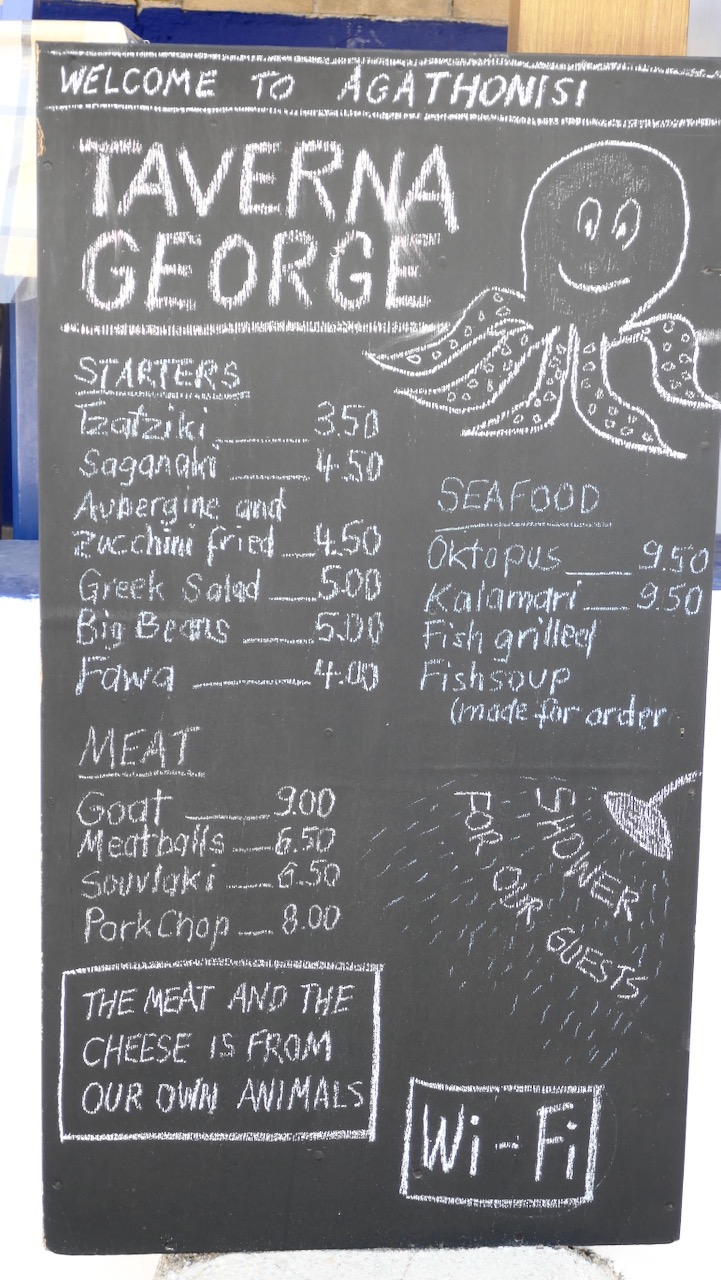 WELCOME TO AGATHONISI
TAVERNA
GEORGE
STARTERS
Tzatziki ____ 3.50
Saganaki ____ 4.50
Aubergine and
zucchini fried __ 4.50
Greek Salad ___ 5.00
Big Beans ____ 5.00
Fawa ______ 4.00
MEAT
Goat ____ 9.00
Meatballs __ 6.50
Souvlaki __ 6.50
Pork Chop __ 8.00
THE MEAT AND THE
CHEESE IS FROM
OUR OWN ANIMALS
SEAFOOD
Oktopus ___ 9.50
Kalamari __ 9.50
Fish grilled
Fishsoup
(made for order
SHOWER
FOR OUR GUESTS
Wi-Fi